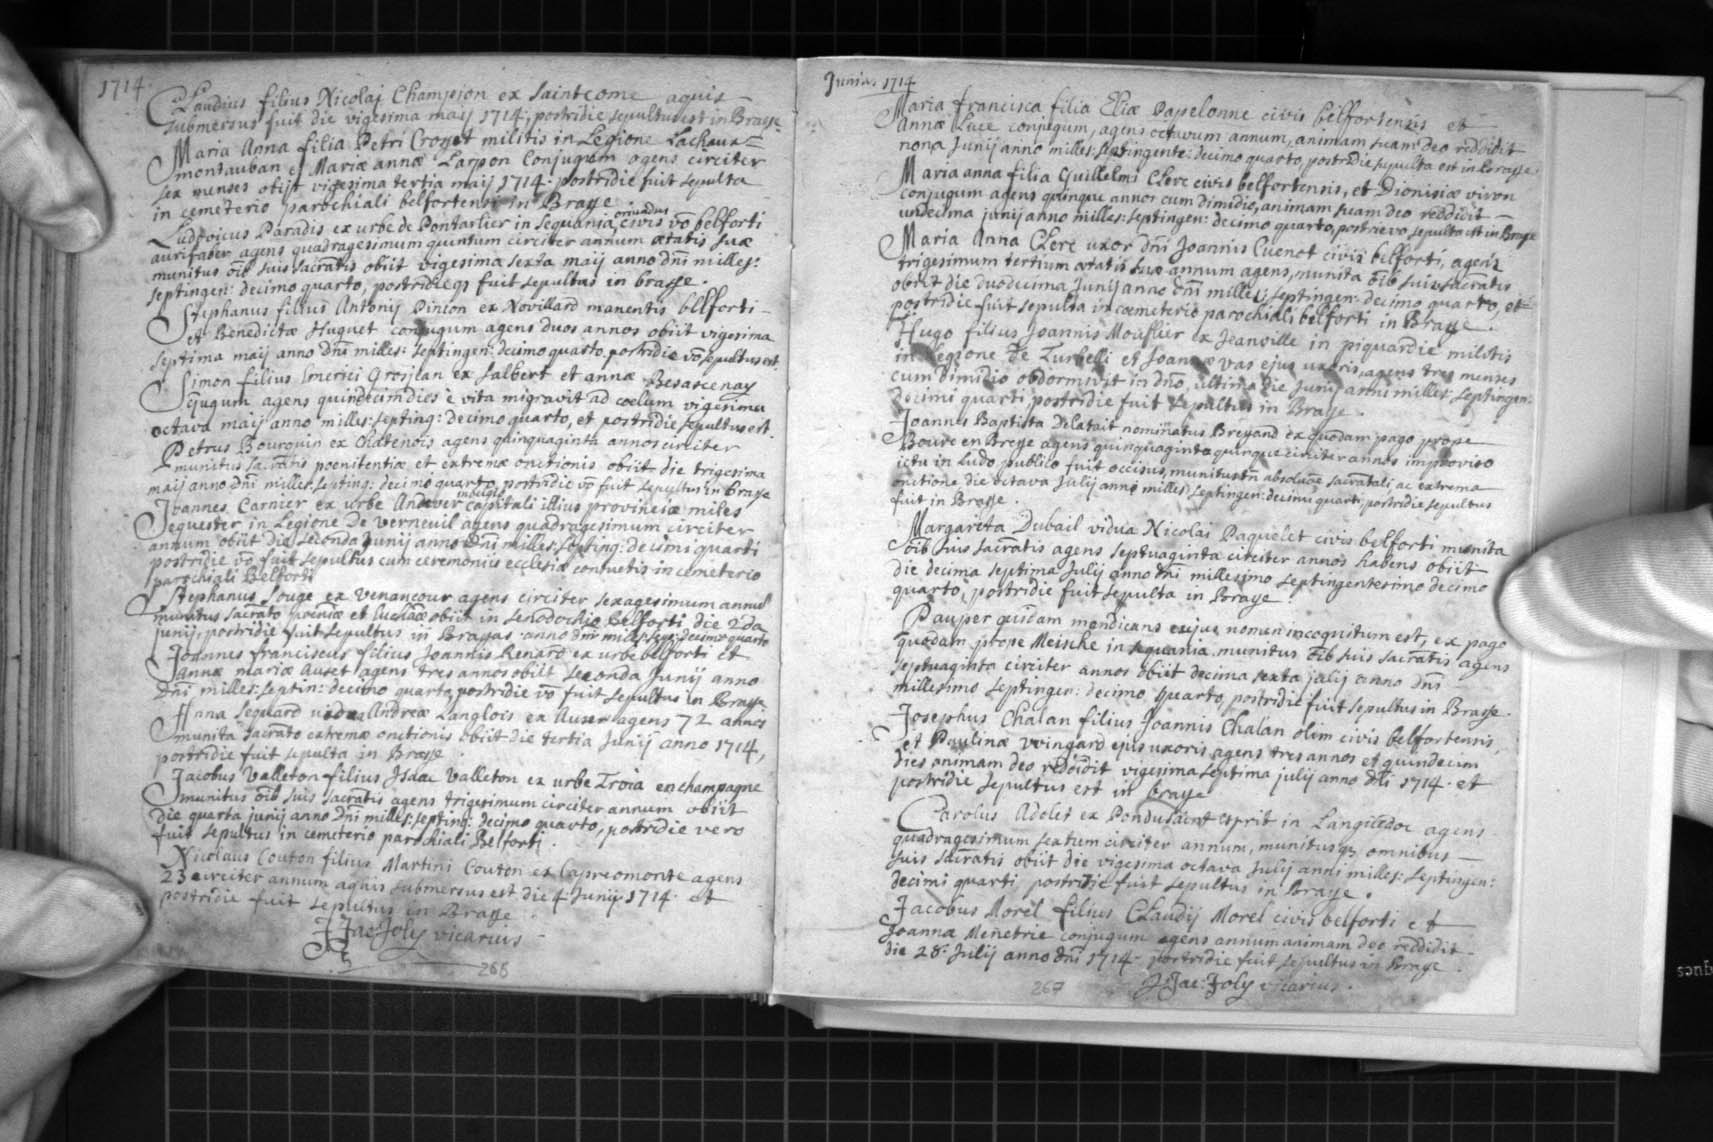 1714.
Claudius filius Nicolai Champion ex saint come aquis
submersus fuit die vigesima maij 1714, postridie sepultus est in Brasse.
Maria Anna filia Petri Crosset militis in Legione Lachaux
montauban et Mariæ annæ Larpon Conjugum agens circiter
sex menses obijt vigesima tertia maij 1714. postridie fuit sepulta
in cemeterio parochiali belfortensi in Brasse
Ludovicus Paradis ex urbe de Pontarlier in sequania oriundus civis vō belforti
aurifaber agens quadragesimum quintum circiter annum ætatis suæ
munitus oib suis sacratis obiit vigesima sexta maij anno dñi milles:
septingen: decimo quarto, postridieqȝ fuit sepultus in brasse.
Stephanus filius Antonij Pinion ex Novillard manentis belforti
et Benedictæ Huguet conjugum agens duos annos obiit vigesima
septima maij anno dñi milles: septingen: decimo quarto, postridie vō sepultus est.
Simon filius Emerici Grosjean ex salbert et annæ Besascenay
qugum agens quindecim dies è vita migravit ad coelum vigesima
octava maij anno milles: septing: decimo quarto, et postridie sepultus est.
Petrus Bourquin ex chatenois agens quinquaginta annos circiter
munitus sacratis poenitentiæ et extremæ onctionis obiit die trigesima
maij anno dñi milles: septing: decimo quarto, postridie vō fuit sepultus in brasse
Joannes Carnier ex urbe Andever capitali illius provinciæ miles
equester in Legione De verneuil agens quadragesimum circiter
annum obiit die seconda junij anno dñi milles: septing: decimi quarti
postridie vō fuit sepultus cum ceremoniis ecclesiæ consuetis in cemeterio
parochiali Belforti
Stephanus Louge ex venancour agens circiter sexagesimum annū
munitus sacrato et obiit in senodochio Belforti die 2da
junij, postridie fuit sepultus in Brassas anno dñi milles: sep: decimo quarto
Joannes franciscus filius Joannis Renard ex urbe belforti et
Annæ mariæ Auset agens tres annos obiit seconda Junij anno
dñi milles: septin: decimo quarto, postridie vō fuit sepultus in Brasse
Anna Sequard vidua Andreæ Langlois ex Auxer agens 72 annos
munita sacrato extremæ onctionis obiit die tertia Junij anno 1714,
postridie fuit sepulta in Brasse.
Jacobus Valleton filius Isaac Valleton ex urbe Troia en champagne
munitus oib suis sacratis agens trigesimum circiter annum obiit
die quarta junij anno dñi milles: septing: decimo quarto, postridie vero
fuit sepultus in cemeterio parochiali Belforti.
Nicolaus Couton filius Martini Couton ex Capreomonte agens
23 circiter annum aquis submersus est die 4 Junij 1714 et
postridie fuit sepultus in Brasse.
J Jac Joly vicarius
266
Junia. 1714
Maria francisca filia Eliæ Papelonne civis belfortensis et
Annæ Luce conjugum, agens octavum annum, animam suam deo reddidit
nona Junij anno milles: septingente: decimo quarto, postridie sepulta est in brasse.
Maria anna filia Guillelmi Clerc civis belfortensis, et Dionisiæ viron
conjugum agens quinque annos cum dimidio, animam suam deo reddidit
undecima junij anno milles: septingen: decimo quarto, postrie vō, sepulta est in Brasse
Maria Anna Clerc uxor dñi Joannis Cuenot civis belforti, agens
trigesimum tertium ætatis suæ annum agens, munita oib suis sacratis
obiit die duodecima Junij anno dñi milles: septingen: decimo quarto, et
postridie fuit sepulta in coemeterio parochiali belforti in Brasse.
Hugo filius Joannis Mousslier ex Jeanville in piquardie militis
in Legione de Turbelli et Joannæ vas ejus uxoris, agens tres menses
cum dimidio obdormivit in dño, ultima die Junij anni milles: septingen:
decimi quarti postridie fuit sepultus in Brasse.
Joannes Baptista Delatait nominatus Breyand ex quodam pago prope
Bourc en Bresse agens quinquaginta quinque circiter annos improviso
ictu in ludo publico fuit occisus, munitus tn absolutōe sacratali ac extrema
onctione die octava Julij anni milles: septingen: decimi quarti, postridie sepultus
fuit in Brasse.
Margareta Dubail vidua Nicolai Paquelet civis belforti munita
oib suis sacratis agens septuaginta circiter annos habens obiit
die decima septima Julij anno dñi millesimo septingentesimo decimo
quarto, postridie fuit sepulta in brasse.
Pauper quidam mendicans cujus nomen incognitum est, ex pago
quodam prope Meische in sequania munitus oib suis sacratis agens
septuaginta circiter annos obiit decima sexta julij anno dñi
millesimo septingen: decimo quarto, postridie fuit sepultus in Brasse.
Josephus Chalan filius Joannis Chalan olim civis belfortensis,
et Paulinæ vvingard ejus uxoris agens tres annos et quindecim
dies animam deo reddidit vigesima septima julij anno dñi 1714. et
postridie sepultus est in brasse
Carolus Adolet ex Pondusaint esprit in Languedoc agens
quadragesimum sextum circiter annum, munitusqȝ omnibus
suis sacratis obiit die vigesima octava Julij anni milles: septingen:
decimi quarti, postridie fuit sepultus in brasse.
Jacobus Morel filius Claudij Morel civis belforti et
Joannæ Menetrie conjugum agens annum animam deo reddidit
die 28 Julij anno dñi 1714. postridie fuit sepultus in brasse.
J Jac: Joly vicarius.
267